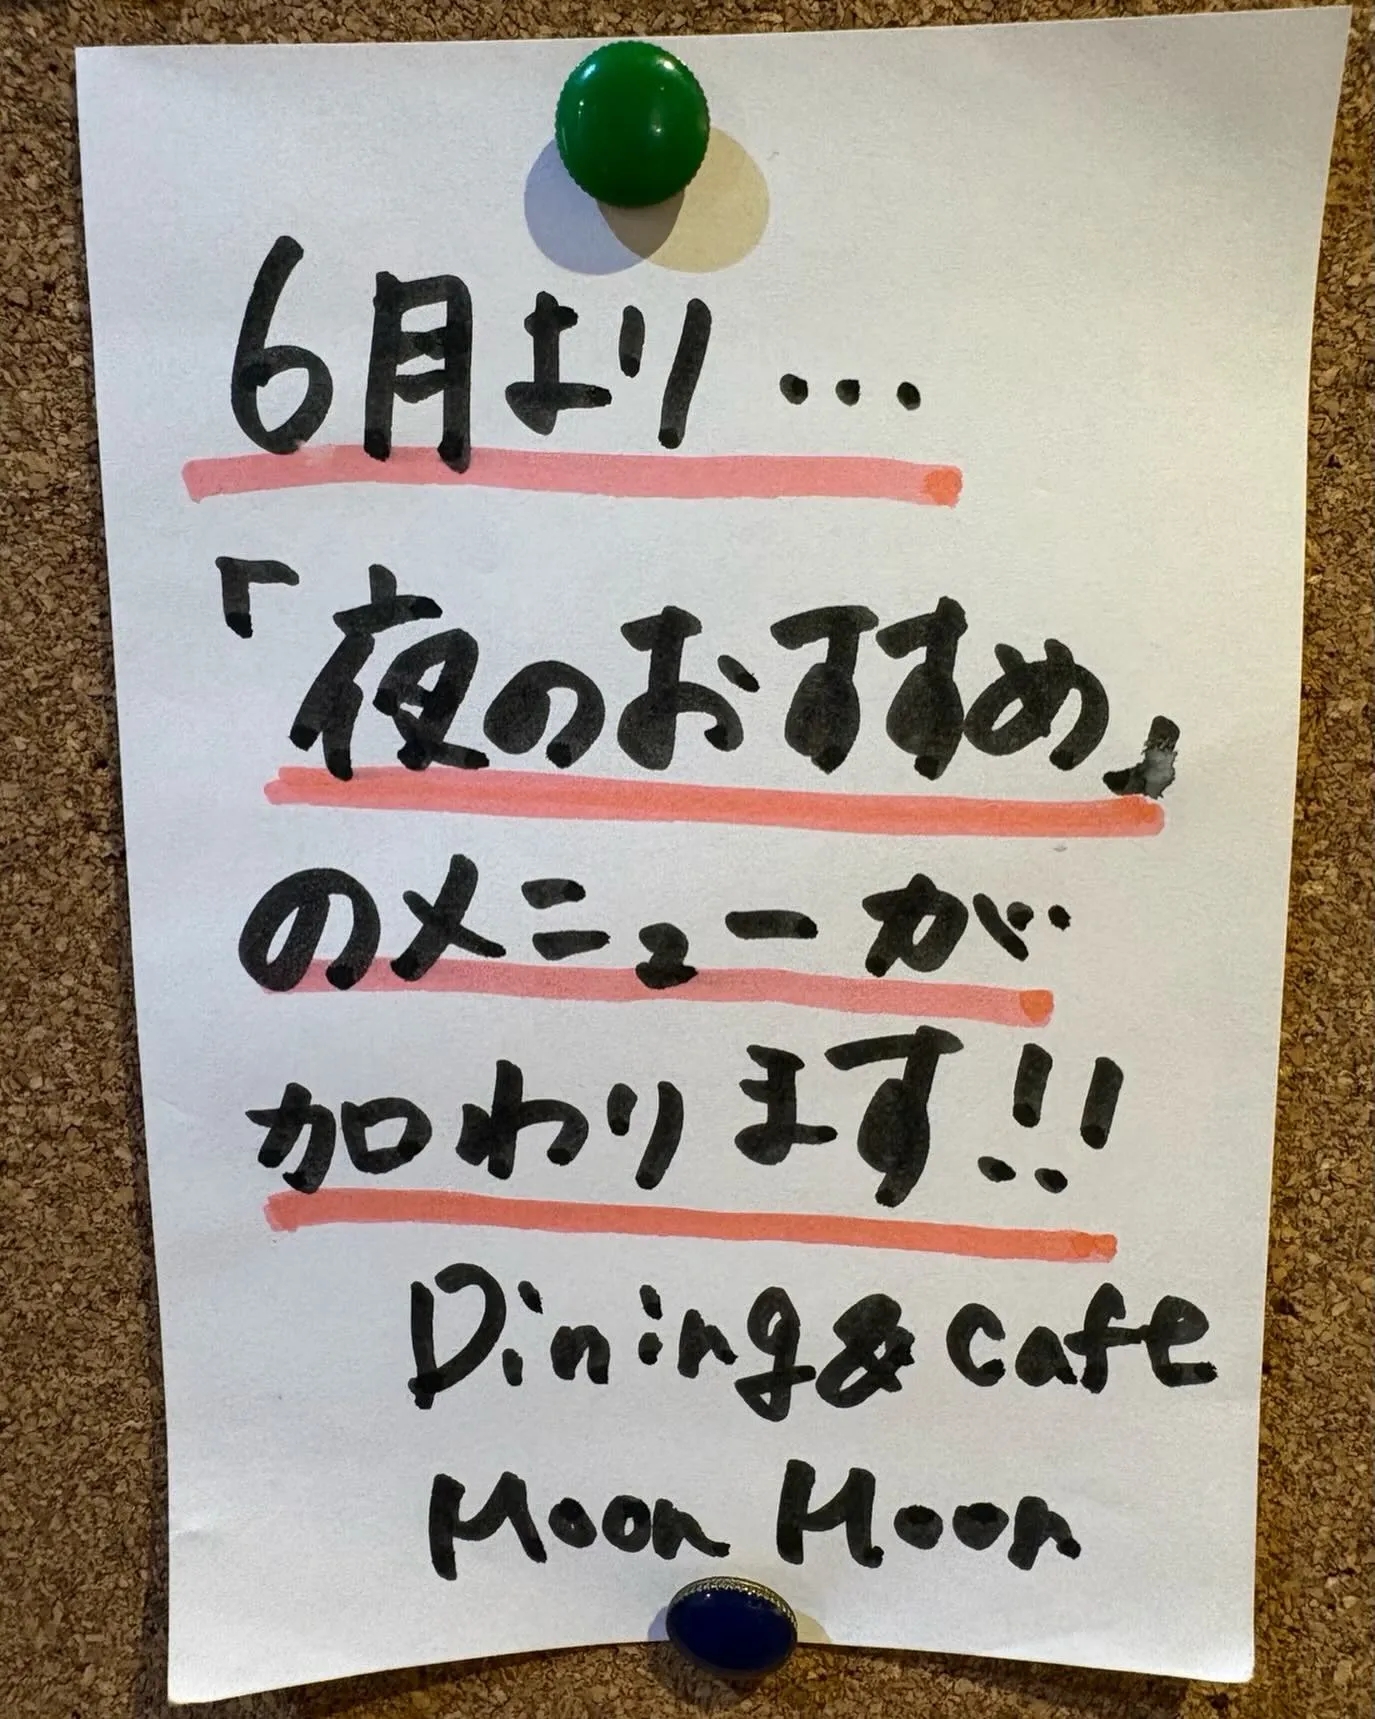 6月より…
「夜のおすすめ」
のメニューが
加わります!!
Dining & cafe
Moon Moon